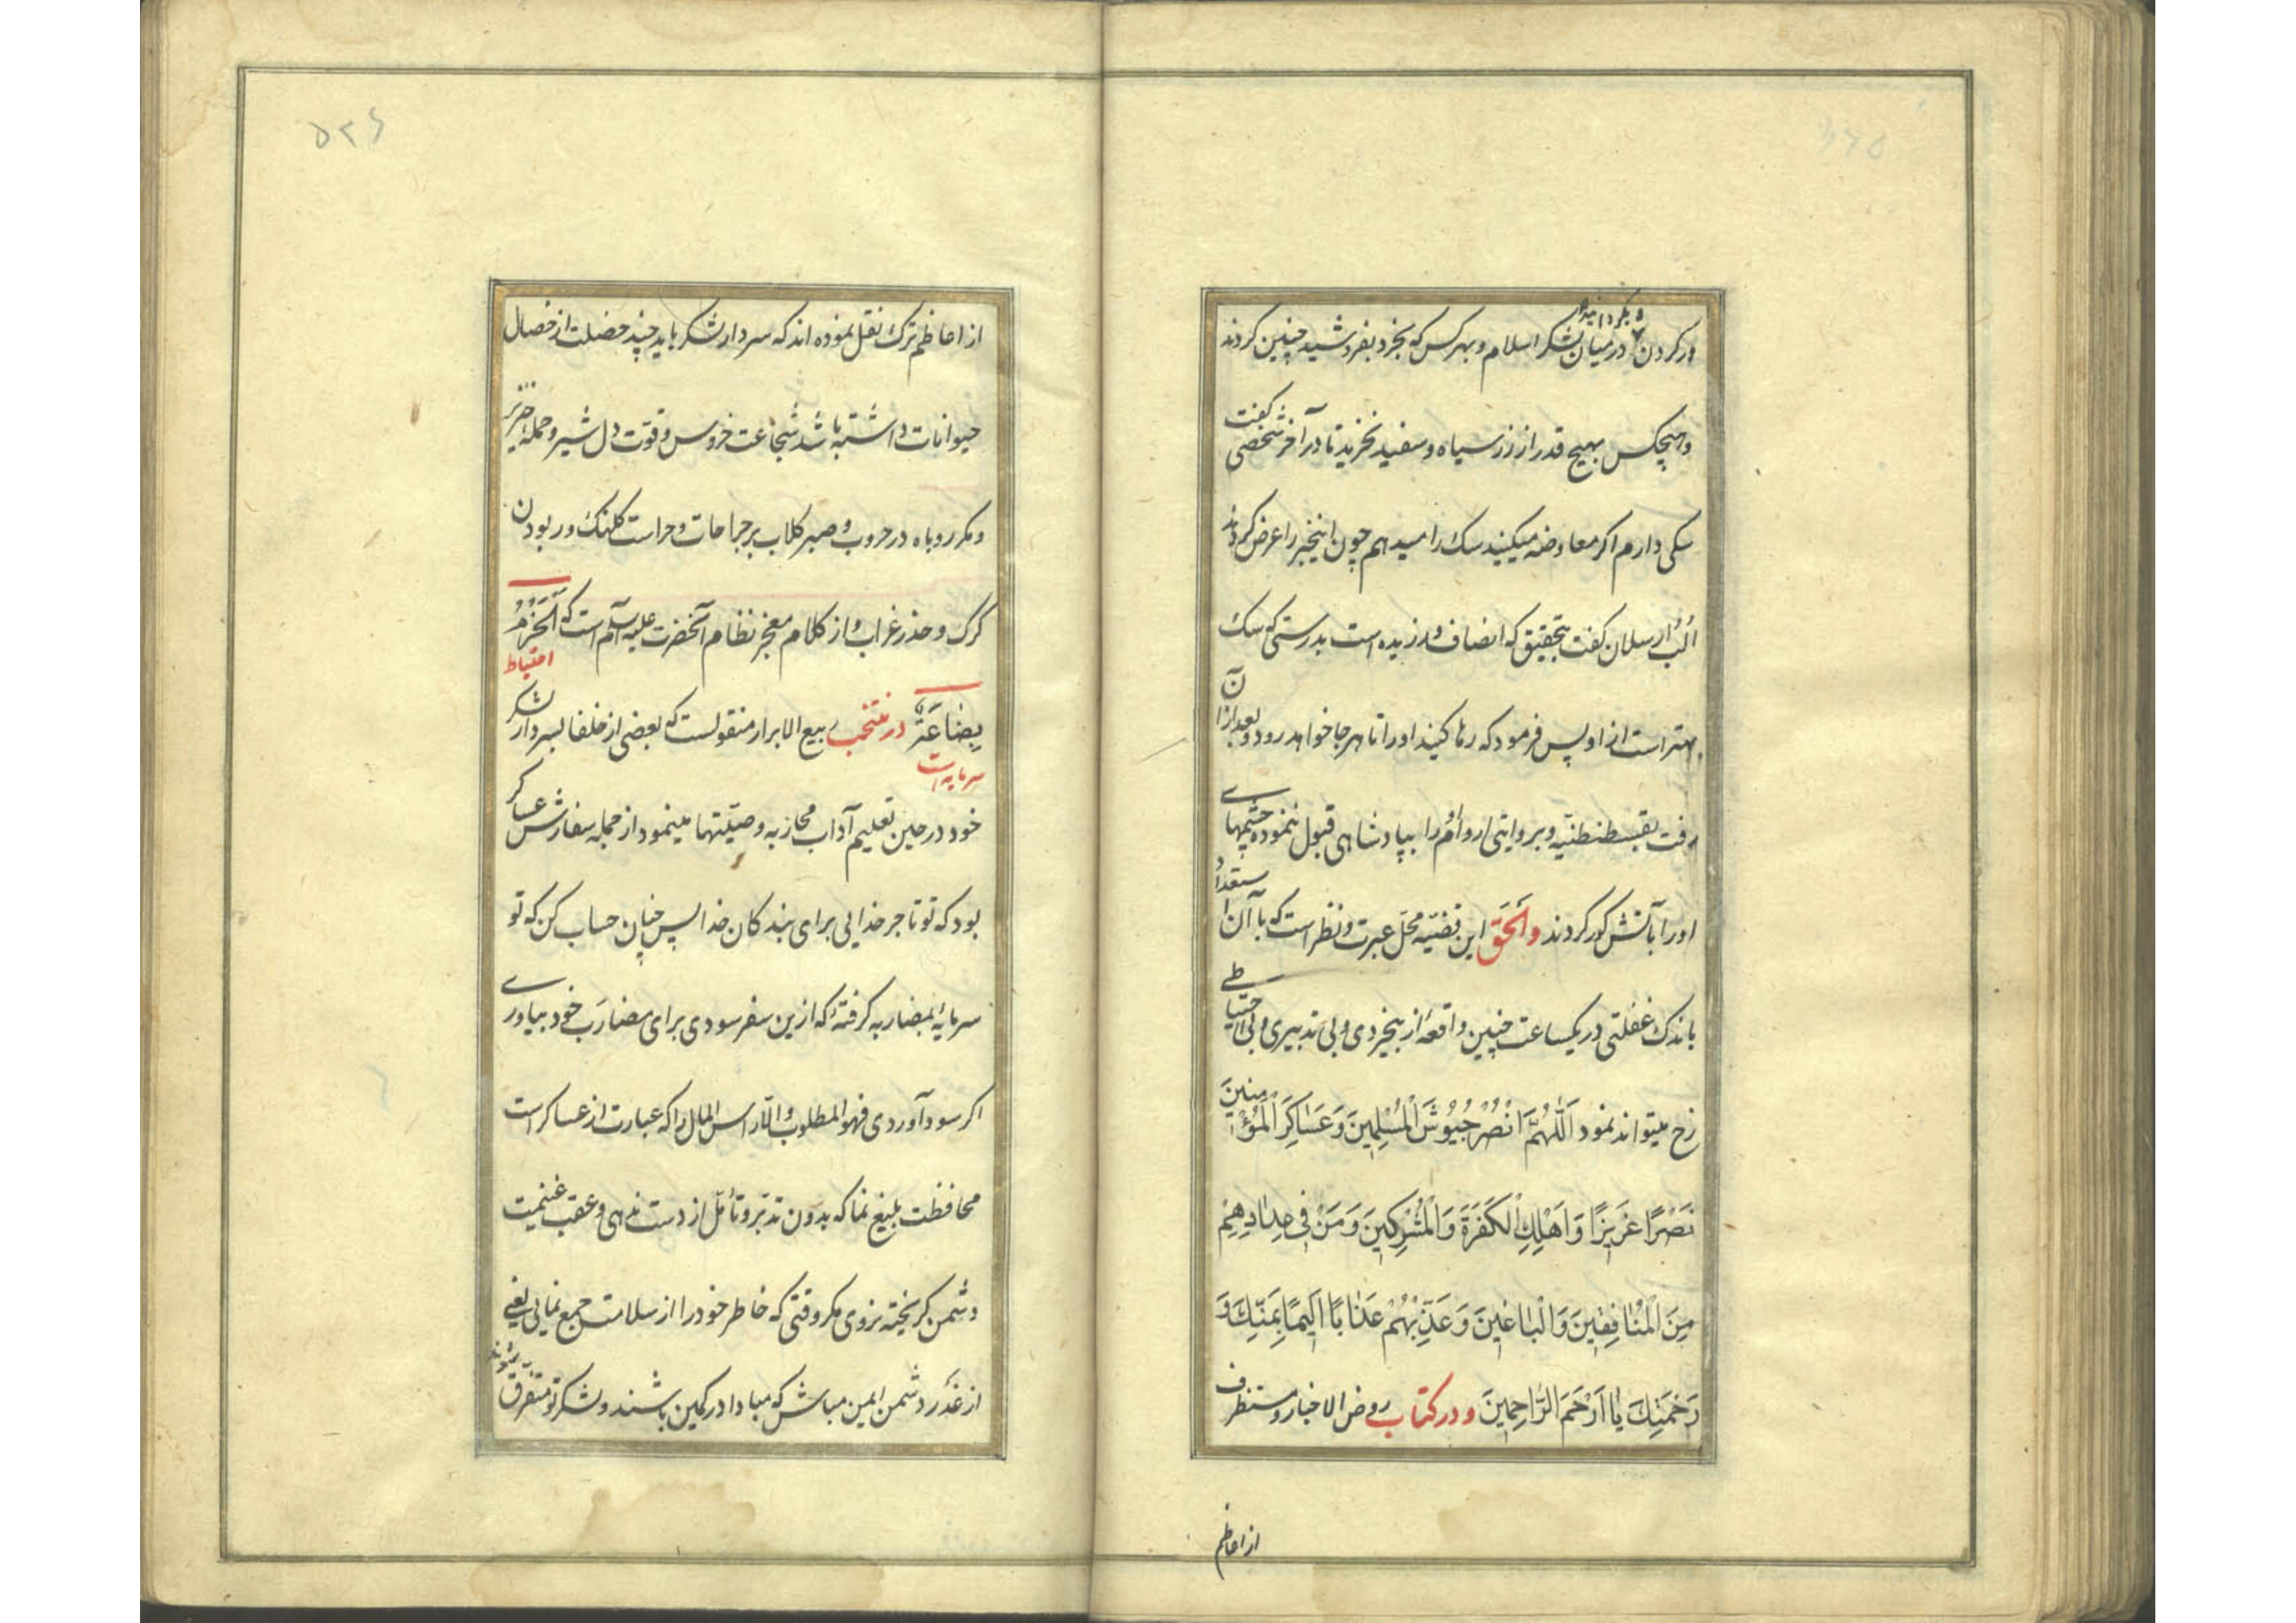 در کردن و بگردانید در میان لشکر اسلام و بهر کس که بخرد بفروشید چنین کردند
و هیچکس بهیچ قدر از زر سیاه و سفید نخرید تا در آخر شخصی گفت
سکی دارم اکر معاوضه میکنید سک را میدهم چون اینخبر را عرض کردند
الب ارسلان کفت بتحقیق که انصاف ورزیده است بدرستی که سک
بهتر است از او پس فرمود که رها کنید او را تا هر جا خواهد رود و بعد از آن
رفت بقسطنطنیّه و بروایتی اروام او را بپادشاهی قبول ننموده چشمهای
او را بآتش کور کردند والحَقّ این قضیّه محل عبرت و نظر است که با آن استعداد
باندک غفلتی در یکساعت چنین واقعهٔ از بیخردی و بی تدبیری و بی احتیاطی
رخ میتواند نمود اَللّٰهُمَّ انْصُرْ جُیُوشَ الْمُسْلِمینَ وَ عَسٰاکِرَ الْمُؤْمِنینَ
نَصْرًا عَزیزًا وَ اَهْلِكِ الْکَفَرَةَ وَ الْمُشْرِکینَ وَ مَنْ فی حِدٰادِهِمْ
مِنَ الْمُنٰافِقینَ وَ الْبٰاغینَ وَ عَذِّبْهُمْ عَذٰابًا اَلیمًا بِمَنِّكَ وَ
رَحْمَتِكَ یٰا اَرْحَمَ الرّٰاحِمینَ و در کتاب روض الاخبار و مستطرف
از اعاظم
۵۲۶
از اعاظم ترک نقل نموده اند که سردار لشکر باید چند خصلت از خصال
حیوانات داشته باشد شجاعت خروس و قوّت دل شیر و حملهٔ خنزیر
و مکر روباه در حروب و صبر کلاب بر جراحات و حراست کلنک و ربودن
کرک و حذر غراب و از کلام معجز نظام آنحضرت علیه السلام است که اَلْحَزْمُ
احتیاط
بِضٰاعَةٌ در منتخب ربیع الابرار منقولست که بعضی از خلفا بسردار لشکر
سرمایه است
خود در حین تعلیم آداب محاربه وصیّتها مینمود از جمله سفارش عساکر
بود که تو تاجر خدایی برای بندکان خدا پس چنان حساب کن که تو
سرمایهٔ بمضاربه کرفتهٔ که ازین سفر سودی برای مضارَب خود بیاوری
اکر سود آوردی فهو المطلوب و الّا رأس المال را که عبارت از عساکر است
محافظت بلیغ نما که بدون تدبّر و تأمّل از دست ندهی و عقب غنیمت
دشمن کریخته نروی مکر وقتی که خاطر خود را از سلامت جمع نمایی یعنی
از غَدْر دشمن ایمن مباش که مبادا در کمین باشند و لشکر تو متفرق شوند